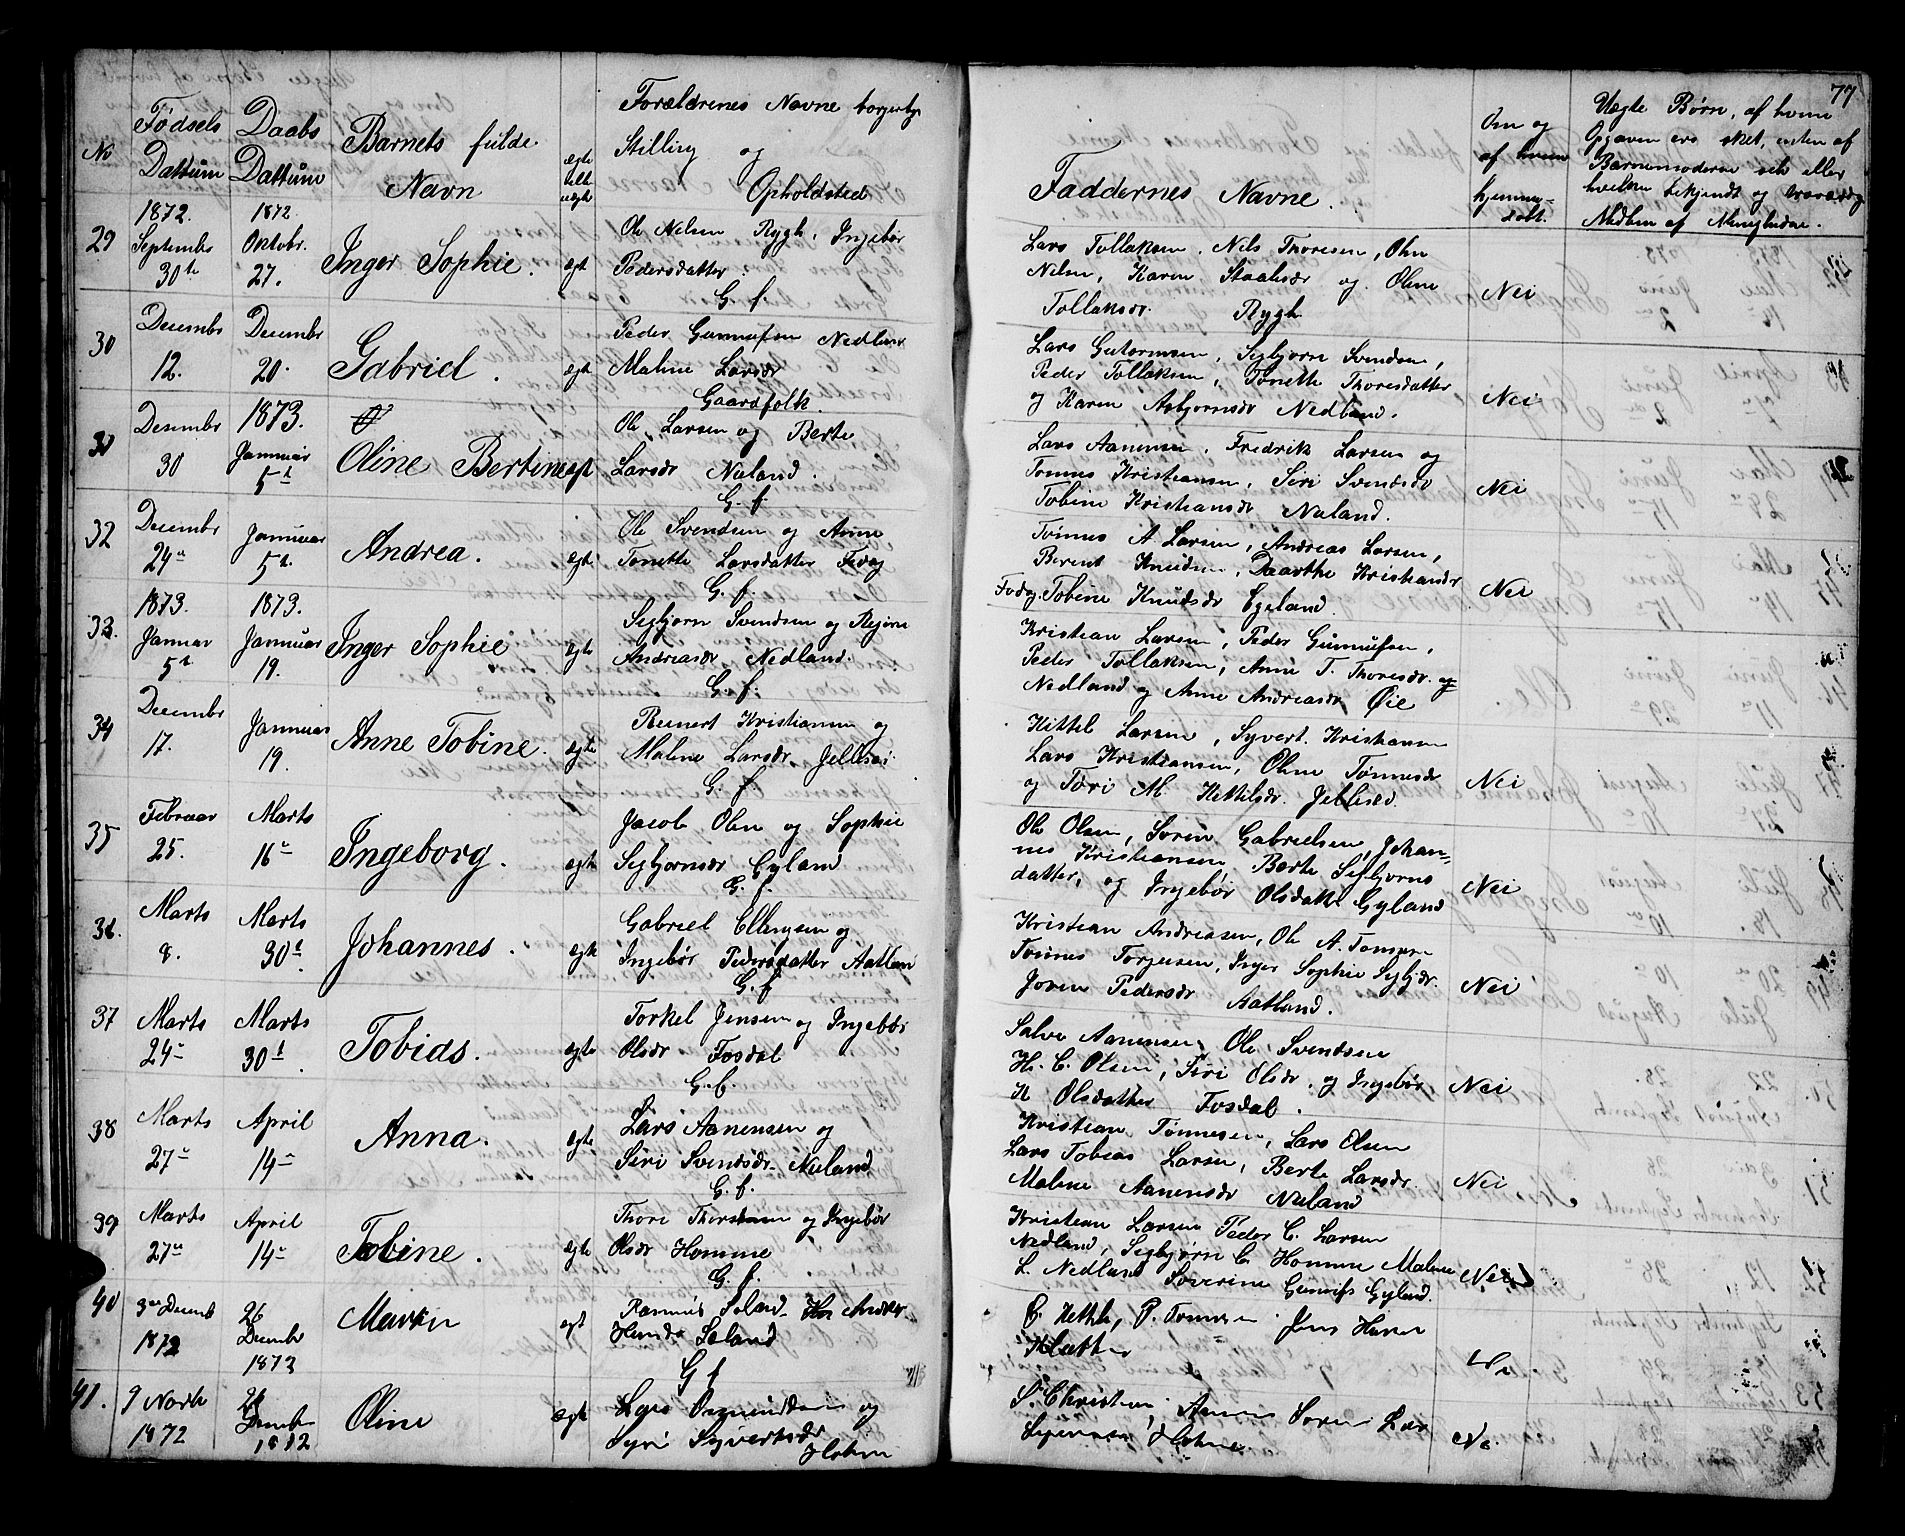 77
No
Fødsels
Dattum
Daabs
Dattum
Barnets fulde
Navn
ægte
eller
uægte
Forældrenes Navne borgerlige
Stilling og
Opholdsted
Faddernes Navne.
Om og
af hvem
hjemme-
døbt.
Uægte Børn, af hvem
Opgaven ers sket, enten af
Barnemoderen selv eller
hvilken bekjendt og
Medlem af Menigheden.
1872.
1872.
29
September
30te
Oktobr.
27.
Inger Sophie.
ægt
Ole Nelsen Rygh, Ingebor
Pedersdatter.
G. f.
Lars Tollaksen. Nils Thoresen, Ohn
Nelsen, Karen Staalesdr og Oline
Tollaksdr. Rygh
Nei
30
Decembr
12.
Decembr
20.
Gabriel.
ægt
Peder Gunnufsen Nedland
Maline Larsdr
Gaardfolk.
Lars Gutormsen, Segbjorn Svendsen,
Peder Tollaksen, Tonette Thoresdatter
og Karen Asbjornsdr Nedland.
Nei
31
Desembr
30
1873.
Januar
5t
Oline Bertine
ægt
Ole Larsen og Berte
Larsdr Nuland.
G. f
Lars Aanensen, Fredrik Larsen og
Tonnes Kristiansen, Siri Svendsdr
Tobine Kristiansdr Nuland.
Nei
32
Decembr
24
Januar
5t.
Andrea.
ægte
Ole Svendsen og Anne
Tonette Larsdatter Fedog
G. f.
Tønnes A Larsen, Andreas Larsen,
Berent Knudsen, Daarthe Kristiansdr
Fedog. Tobine Knudsdr Egeland.
Nei
1873.
1873.
33.
Januar
5t
Januar
19.
Inger Sophie
ægte
Segbjorn Svendsen og Rejine
Andreasdr Nedland.
G. f.
Kristian Larsen, Peder Gunnufsen,
Peder Tollaksen, Anne T. Thoresdr. og
Nedland og Anne Andreasdr Øie
34
Decembr
17.
Januar
19.
Anne Tobine.
ægte
Reinert Kristiansen og
Maline Larsdr.
G. f
Kittel Larsen, Syvert. Kristiansen
Lars Kristiansen, Oline Tønnesdr
og Tori M. Kittilsdr.
Nei
35
Februar
25.
Marts
16
Ingeborg.
ægte
Jacob Olsen og Sophie
Segbjornsdr Gyland
G. f.
Ole Olsen, Soren Gabrielsen, Johan-
nes Kristiansen, Berte Segbjorns
datter, og Ingebør Olsdatter Gyland
Nei
36.
Marts
8.
Marts
30t
Johannes.
ægte
Gabriel Ellingsen og
Ingebør Pedersdatter Aatland
G. f
Kristian Andreassen, Ole A. Tonsen
Tønnes Torjusen, Inger Sophie Segbjdr.
Joren Pedersdr Aatland.
Nei
37
Marts
24
Marts
30t
Tobias.
ægte
Torkel Jensen og Ingebør
Olsdr Fosdal
G. f.
Salve Aanensen, Ole Svendsen
H. C. Olsen, Siri Olsdr. og Ingebør
K Olsdatter Fosdal.
Nei
38
Marts
27
April
14
Anna.
ægte
Lars Aanensen og
Siri Svendsdr. Nuland
G. f.
Kristian Tønnesen, Lars Olsen
Lars Tobias Larsen, Berte Larsdr.
Maline Aanensdr Nuland
Nei
39
Marts
27
April
14
Tobine.
ægte
Thore Thorsen og Ingebør
Olsdr Homme
G. f.
Kristian Larsen Peder C. Larsen
Nedland, Segbjørn C. Homme Maline
L. Nedland Soverine Gunufs Gyland.
Nei
40
3 Decemb
1872
26
Decembr
1872
Martin
ægt
Rasmus Soland
Soland
G f
Klætten
Nei
41.
9 Novbr
1872
26
Decembr
1872
Oline
Ægte
Lars Osmundsen og
Syri Syvertsdr
S. Christian
Nei